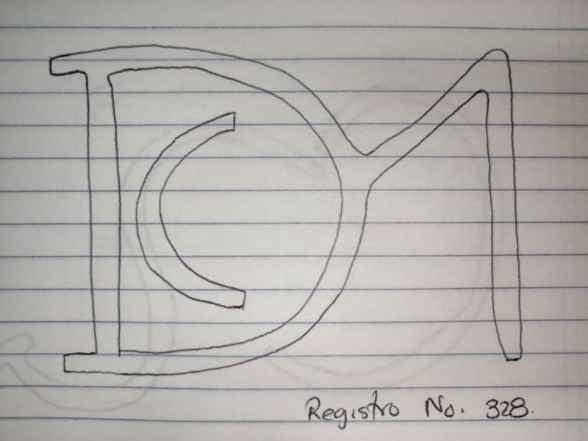 DCM
Registro No. 328.